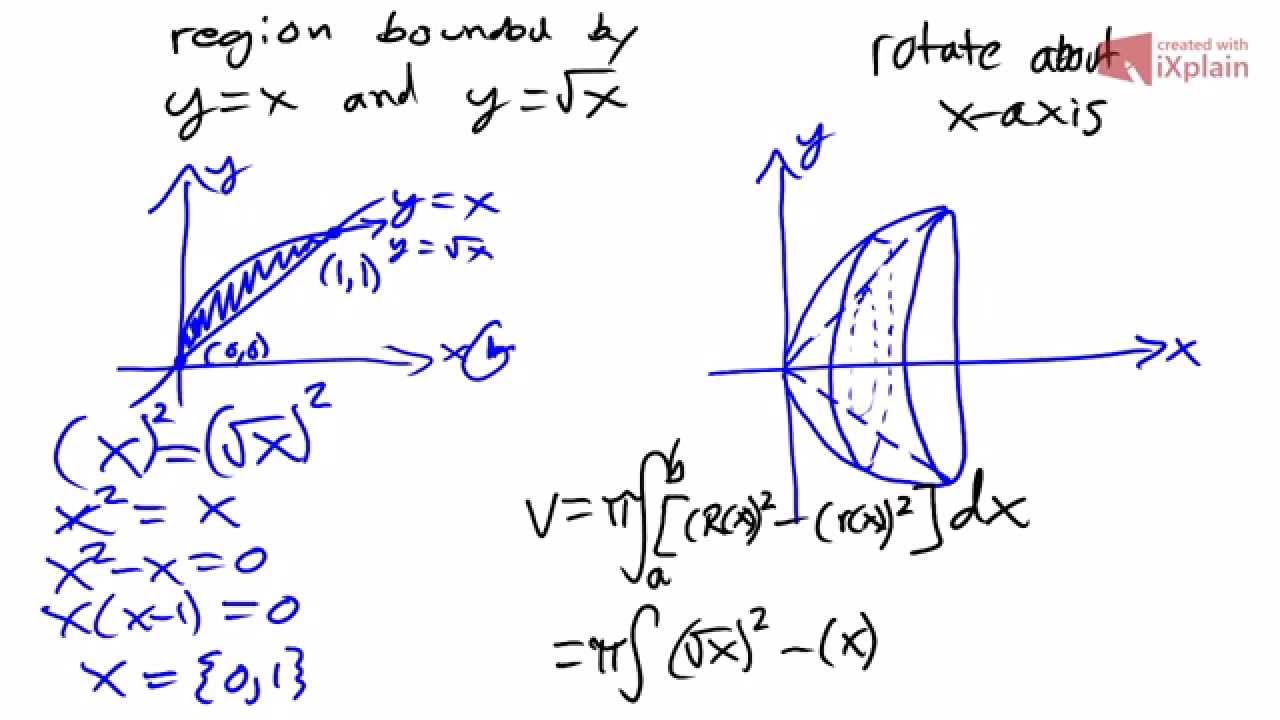 region bounded by
y = x and y = √x
rotate about
x-axis
created with
iXplain
y
y = x
y = √x
(1, 1)
(0,0)
x
(x)² = (√x)²
x² = x
x² - x = 0
x(x-1) = 0
x = {0, 1}
y
x
V = π∫ₐᵇ [(R(x))² - (r(x))²] dx
= π∫ (√x)² - (x)